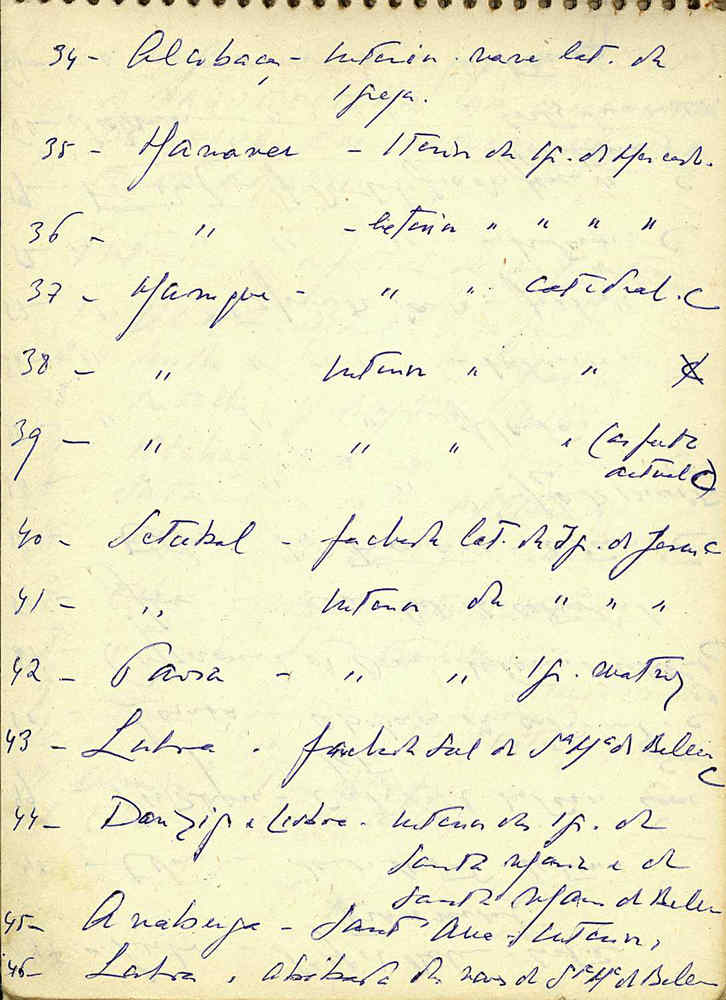 34 - Alcobaça - Interior nave lat. da
Igreja.
35 - Hanover - Iterior da Ig. do Mercado.
36 - " - Interior " " " "
37 - " " Catedral. C
38 - " Interior " "
39 - " " " " (
actual C)
40 - Setubal - fachada lat. da Ig. de Jesus C
41 - " Interior da " " "
42 - " " Ig. matriz
43 - Lisboa . fachada Sul de Sta Ma de Belem
C
44 - Danzig e Lisboa - Interior da Ig. de
Santa Maria e de
Santa Maria de Belem
45 - Anaberga - Sant'Ana - Interior,
46 - Lisboa , abóbada da nave de Sta Ma de Belem